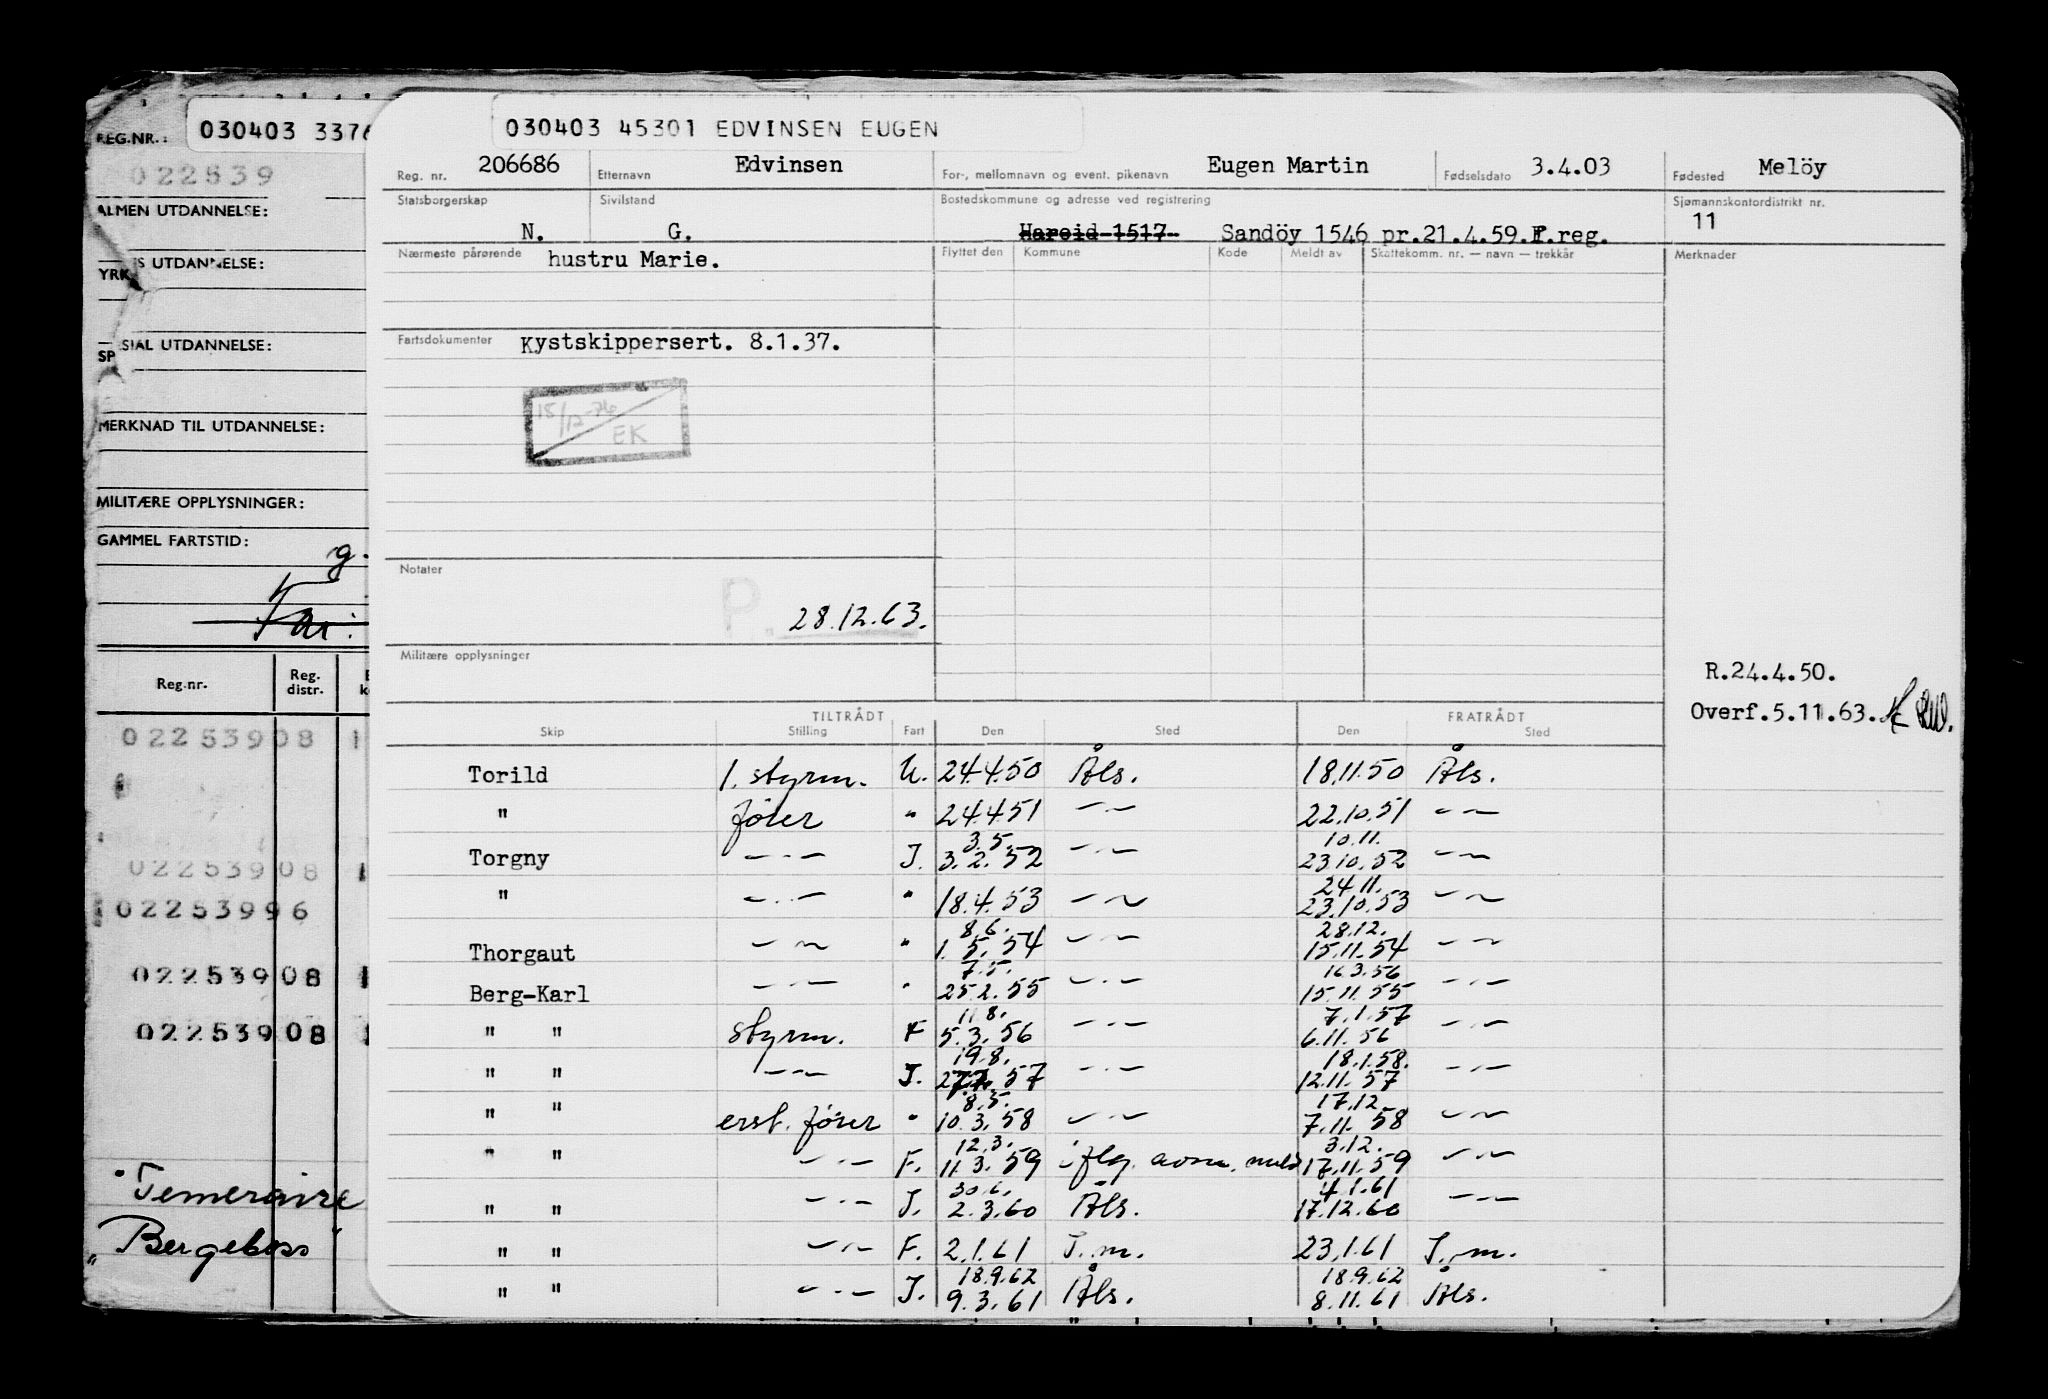 REG.NR.: 030403 3376
022539
ALMEN UTDANNELSE:
YRKES UTDANNELSE:
SPESIAL UTDANNELSE:
MERKNAD TIL UTDANNELSE:
MILITÆRE OPPLYSNINGER:
GAMMEL FARTSTID:
g.
Reg.nr. Reg. distr.
022539 08
022539 08
022539 96
022539 08
022539 08
"Temeraire
"Bergeboss"
030403 45301 EDVINSEN EUGEN
Reg. nr. 206686 Etternavn Edvinsen For-, mellomnavn og event. pikenavn Eugen Martin Fødselsdato 3.4.03 Fødested Melöy
Statsborgerskap Sivilstand Bostedskommune og adresse ved registrering Sjømannskontordistrikt nr.
N. G. Hareid 1517 Sandöy 1546 pr.21.4.59.F.reg. 11
Nærmeste pårørende hustru Marie. Flyttet den Kommune Kode Meldt av Skattekomm. nr. — navn — trekkår Merknader
Fartsdokumenter Kystskippersert. 8.1.37.
15/12-76
EK
Notater
P. 28.12.63.
Militære opplysninger
R.24.4.50.
Overf.5.11.63.
TILTRÅDT FRATRÅDT
Skip Stilling Fart Den Sted Den Sted
Torild 1. styrm. U. 24.4.50 Åls. 18.11.50 Åls.
" fører " 24.4.51 —"— 22.10.51 —"—
3.5. 10.11.
Torgny —"— I. 3.2.52 —"— 23.10.52 —"—
24.11.
" —"— " 18.4.53 —"— 23.10.53 —"—
8.6. 28.12.
Thorgaut —"— " 1.5.54 —"— 15.11.54 —"—
7.5. 16.3.56
Berg-Karl —"— " 25.2.55 —"— 15.11.55 —"—
11.8. 7.1.57
" " styrm. F 5.3.56 —"— 6.11.56 —"—
19.8. 18.1.58.
" " —"— I. 57 —"— 12.11.57 —"—
8.5. 17.12.
" " erst. fører " 10.3.58 —"— 7.11.58 —"—
12.3. 3.12.
" " —"— F. 11.3.59 iflg. 17.11.59 —"—
30.6. 4.1.61
" " —"— I. 2.3.60 Åls. 17.12.60 —"—
" " —"— F. 2.1.61 I.m. 23.1.61 I.m.
18.9.62 18.9.62
" " —"— I. 9.3.61 Åls. 8.11.61 Åls.